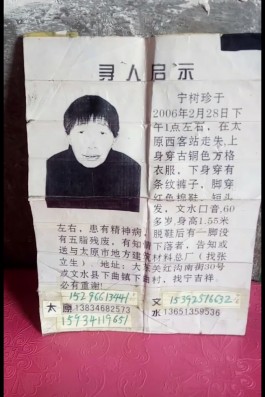 寻人启示
宁树珍于
2006年2月28日下
午1点左右，在太
原西客站走失，上
身穿古铜色万格
衣服，下身穿有
条纹裤子，脚穿
红色棉鞋，短头
发，文水口音，60
多岁，身高1.55米
左右，患有精神病，脱鞋后有一脚没
有五脂残废，有知情下落者，告知或
送与太原市地方建筑材料总厂（找张
立生）。地址：大东关红沟南街30号
或文水县下曲镇下曲村，找宁吉祥，
必有重谢！
太原 13834682573
15934119651
文水 15392516632
13651359536